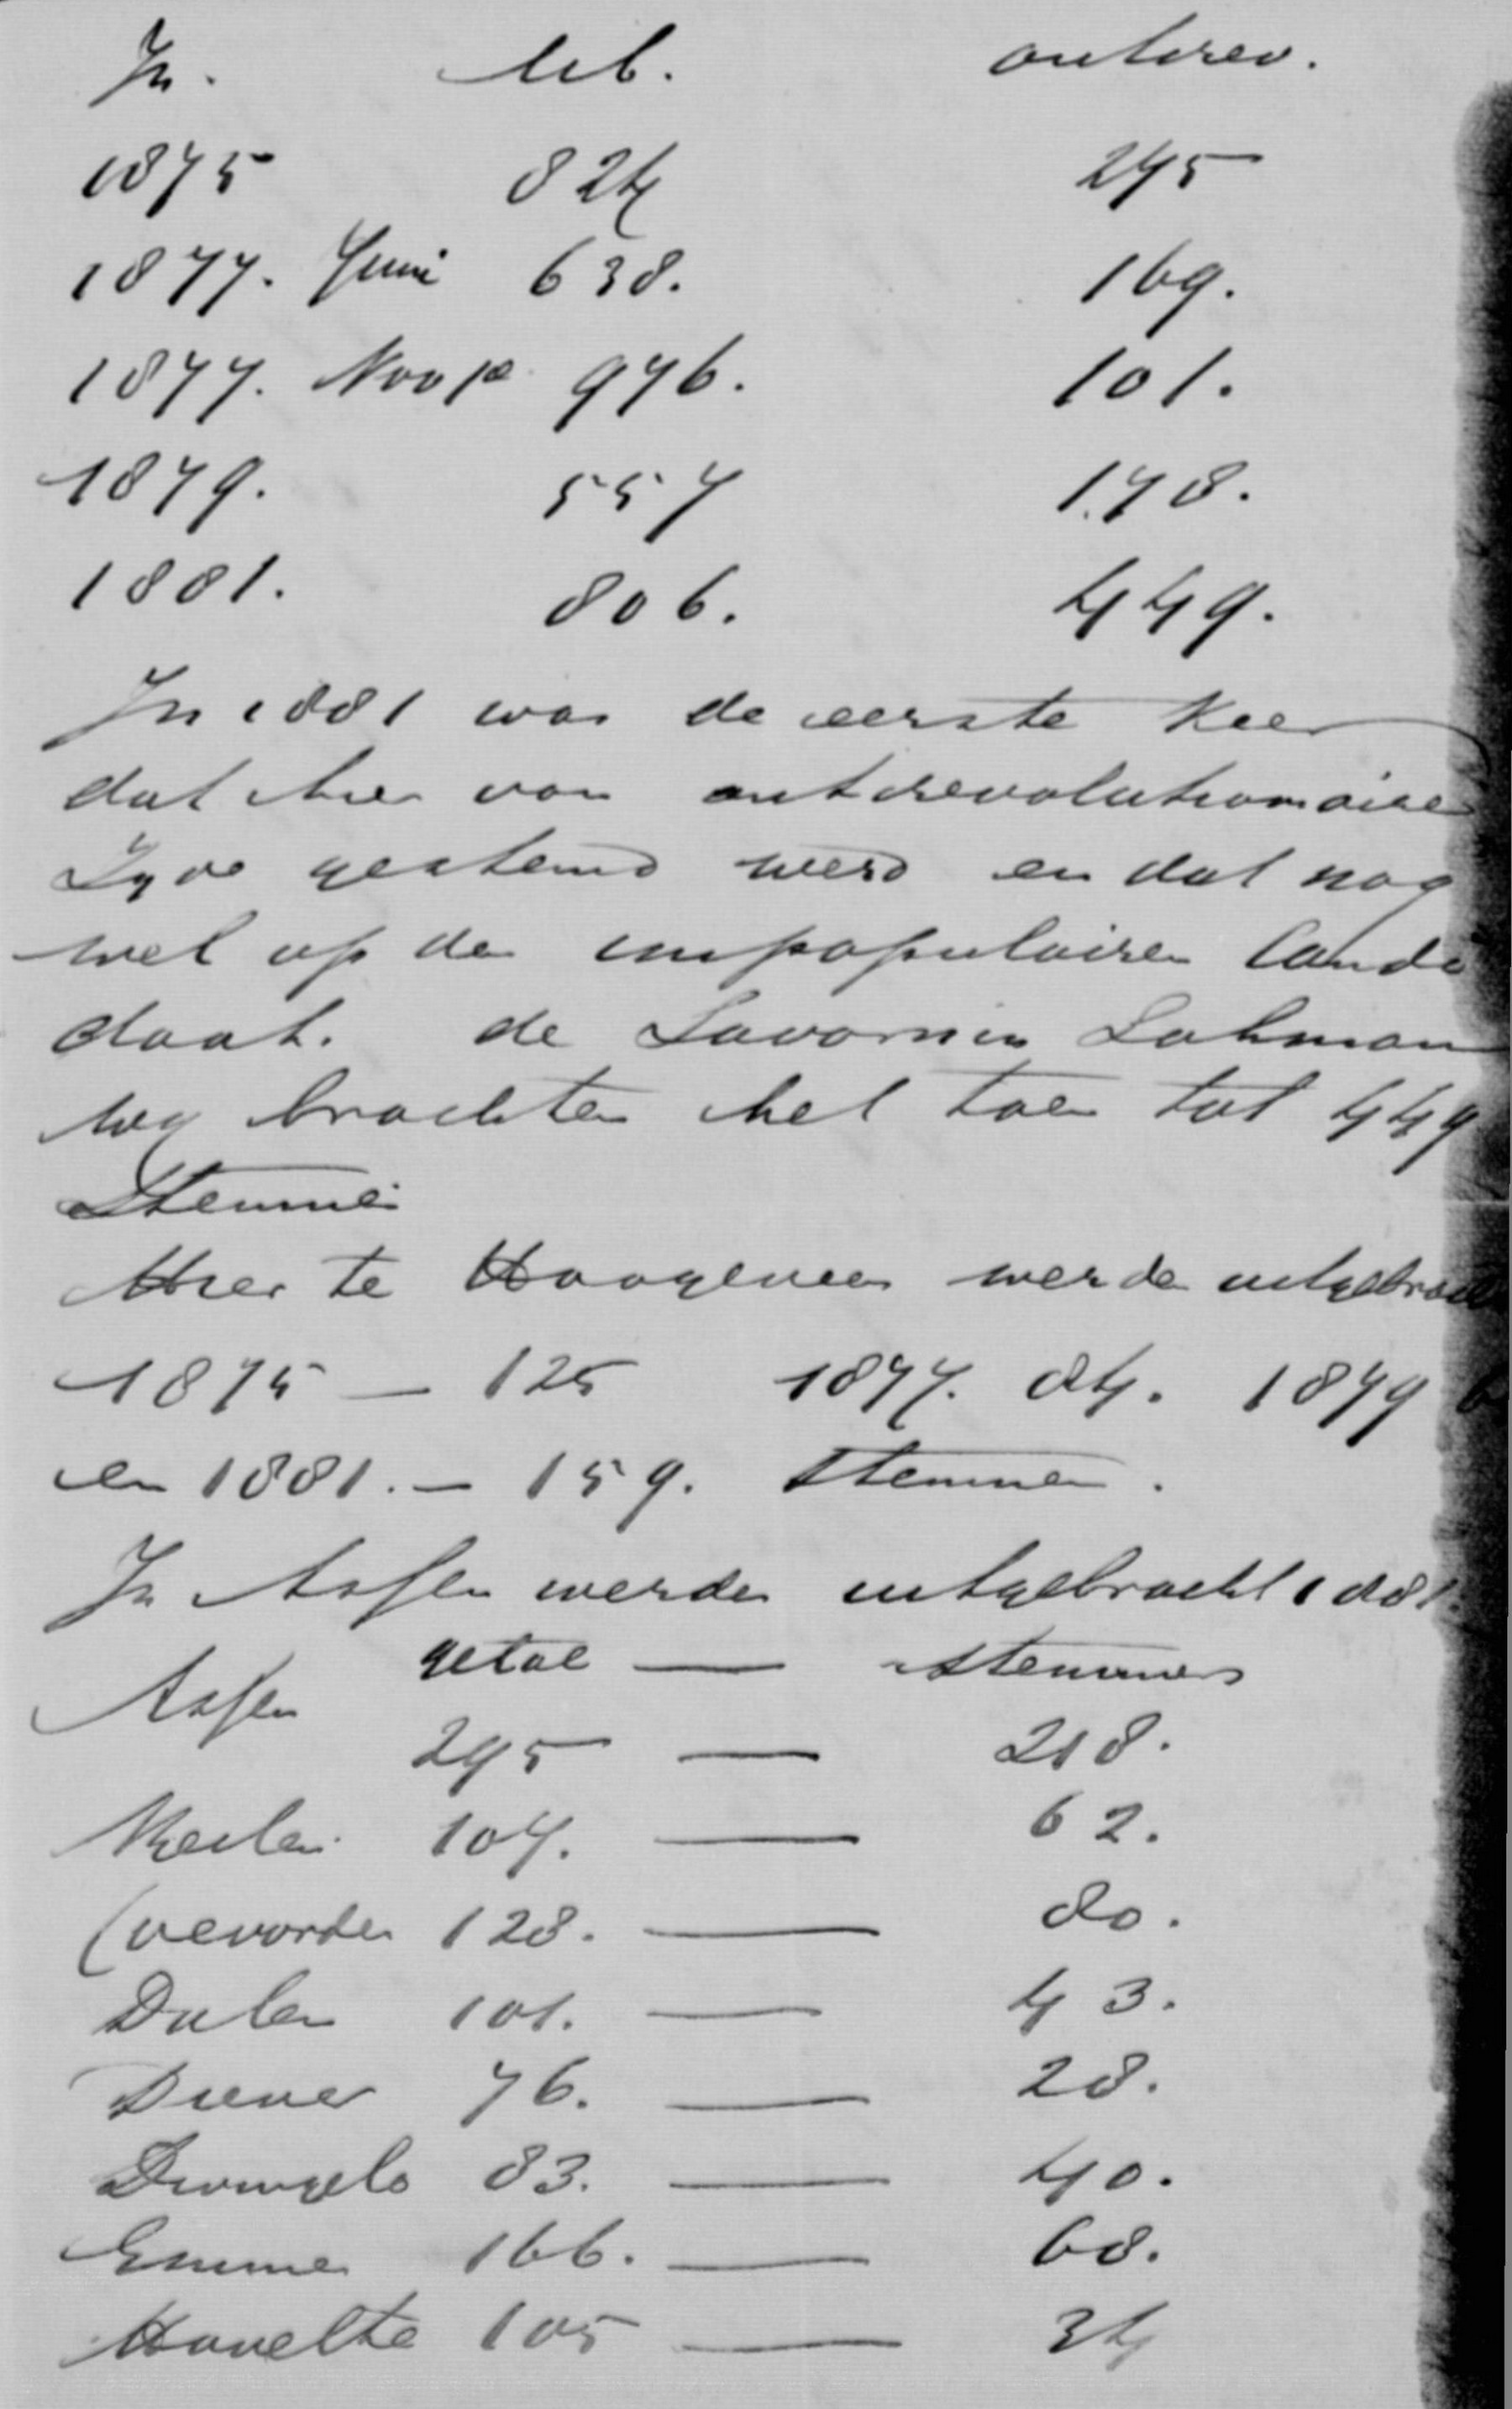 In. lib. antirev.
1875 824 275
1877. Juni 638. 169.
1877. Nov 976. 101.
1879. 557 178.
1881. 806. 449.
In 1881 was de eerste keer
dat hier van antirevolutionaire
Zyde gestemd werd en dat nog
wel op den impopulairen Candi
daat. de Savornin Lohman
wy brachten het toen tot 449
Stemmen
Hier te Hoogeveen werden uitgebracht
1875 – 125 1877. 84. 1879
en 1881. – 159. Stemmen.
In Assen werden uitgebracht 1881.
getal — stemmers
Assen 295 — 218.
Beilen 107. — 62.
Coevorden 128. — 80.
Dalen 101. — 43.
Diever 76. — 28.
Dwingelo 83. — 40.
Emmen 166. — 68.
Havelte 105 — 34